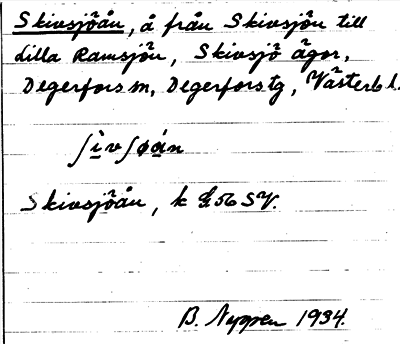 Skivsjöån, å från Skivsjön till
Lilla Ramsjön, Skivsjö ägor,
Degerfors sn, Degerfors tg, Västerb. l.
ʃi̱vʃøa̱n
Skivsjöån, k G 56 SV.
B. Nygren 1934.